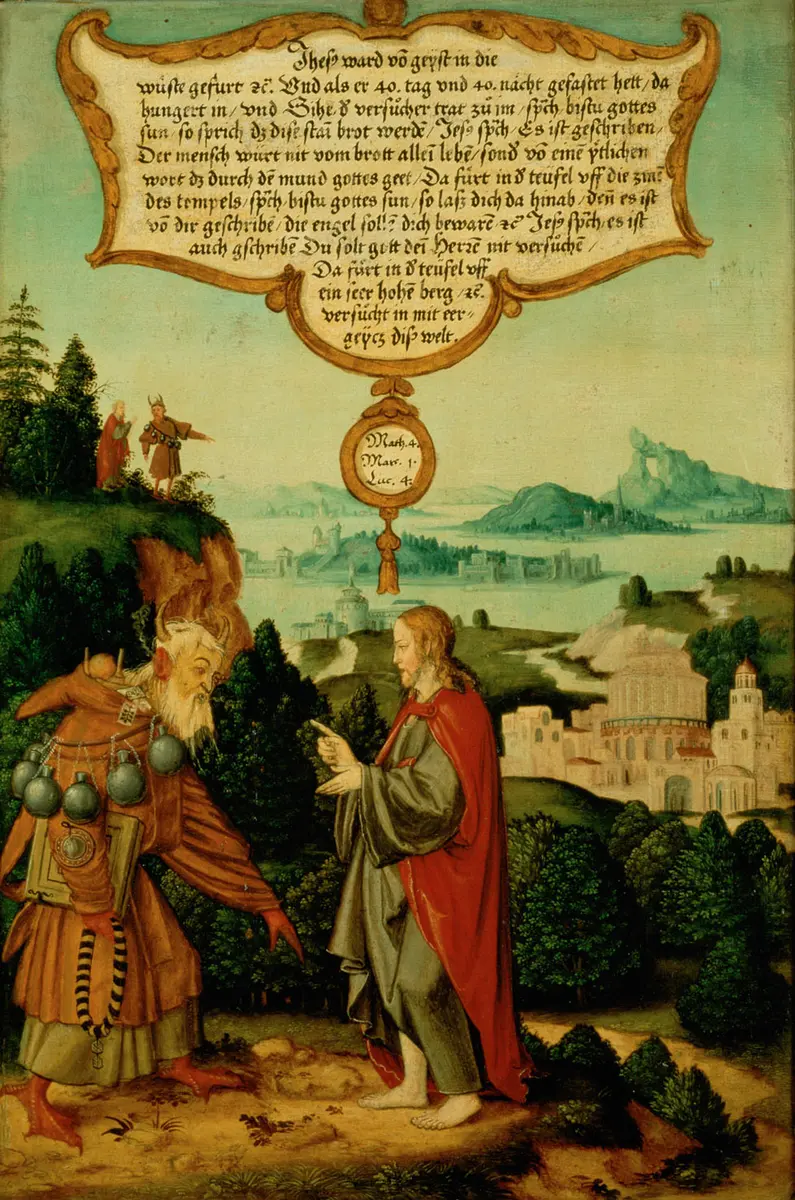 Jhesꝰ ward võ geyst in die
wüste gefurt ⁊c̃. Vnd als er 40. tag vnd 40. nächt gefastet hett / da
hungert in / vnd Sihe / d̕ versůcher trat zů jm / spr̃ch bistu gottes
sun / so sprich dz dise stain brot werdẽ / Jesꝰ spr̃ch / Es ist geschriben /
Der mensch würt nit vom brott alleĩ lebẽ / sond̕ võ einẽ ÿtlichen
wort dz durch dẽ mund gottes geet / Da fürt in d̕ teufel vff die zinẽ
des tempels / spr̃ch bistu gottes sun / so laß dich da hinab / deñ es ist
võ dir geschribẽ / die engel soll̃ẽ dich bewarẽ ⁊c̃ Jesꝰ spr̃ch / es ist
auch gschribẽ Du solt gott deĩ Herrẽ nit versůchẽ /
Da fürt in d̕ teufel vff
ein seer hohẽ berg / ⁊c̃.
versůcht in mit eer⸗
geÿcz diß welt.
Math. 4.
Marc. 1.
Luc. 4: